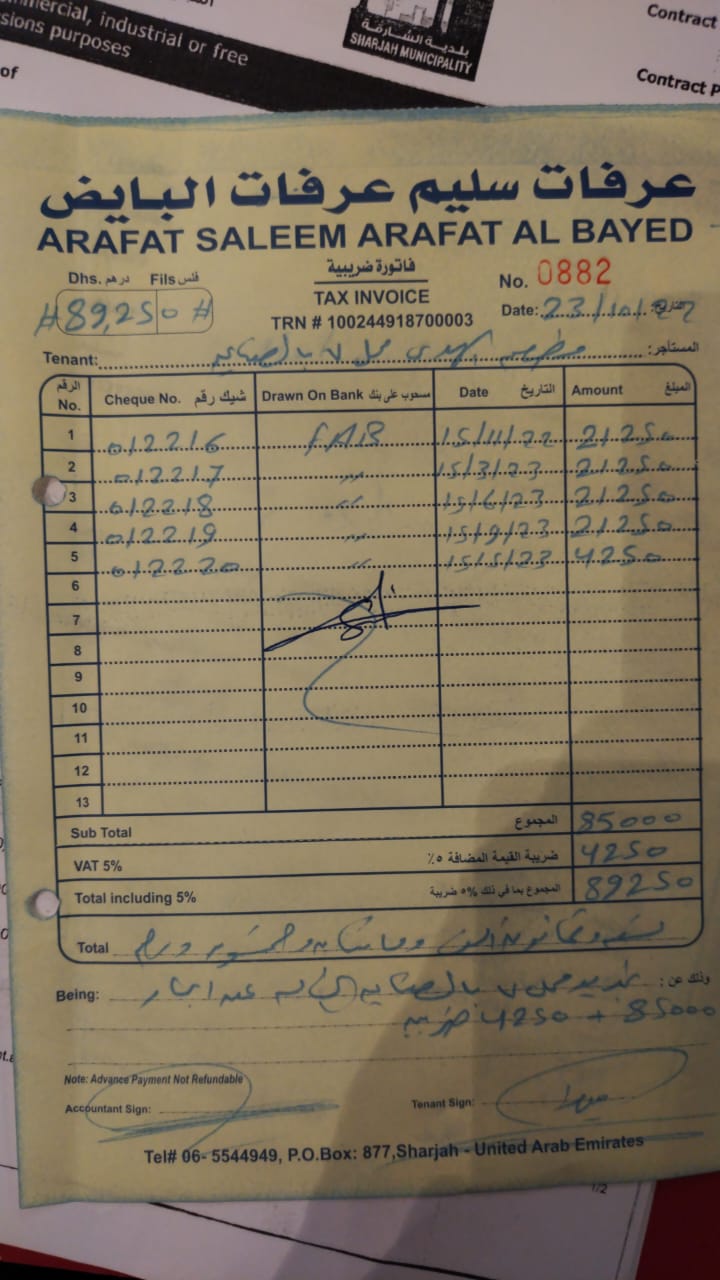 ercial, industrial or free
sions purposes
of
بلدية الشارقة
SHARJAH MUNICIPALITY
Contract
Contract P
عرفات سليم عرفات البايض
ARAFAT SALEEM ARAFAT AL BAYED
Dhs. درهم Fils فلس
فاتورة ضريبية
No. 0882
#89,250#
TAX INVOICE
Date: 23/10/22 التاريخ:
TRN # 100244918700003
Tenant: محل المستأجر:
الرقم No. Cheque No. شيك رقم Drawn On Bank مسحوب على بنك Date التاريخ Amount المبلغ
1 012216 FAB 15/11/22 21250
2 012217 〃 15/3/23 21250
3 012218 〃 15/6/23 21250
4 012219 〃 15/9/23 21250
5 012220 〃 15/5/23 4250
6
7
8
9
10
11
12
13
Sub Total المجموع 85000
VAT 5% ضريبة القيمة المضافة ٥٪ 4250
Total including 5% المجموع بما في ذلك ٥% ضريبة 89250
Total
Being: عن ايجار وذلك عن:
85000 + 4250 ضريبه
Note: Advance Payment Not Refundable
Accountant Sign:
Tenant Sign:
Tel# 06- 5544949, P.O.Box: 877,Sharjah - United Arab Emirates
1/2